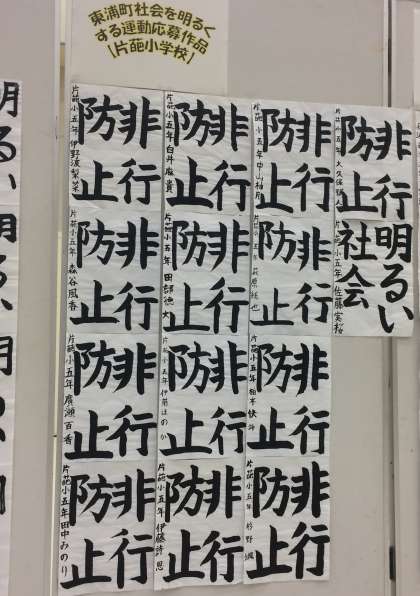 東浦町社会を明るく
する運動応募作品
[片葩小学校]
非行
防止
片葩小五年 大久保
非行
防止
片葩小五年 中山
非行
防止
片葩小五年 臼井麻貴
非行
防止
片葩小五年 伊野波梨菜
明るい
社会
片葩小五年 佐藤実桜
非行
防止
片葩小五年 萩原
非行
防止
片葩小五年 田部
非行
防止
片葩小五年 森谷風香
非行
防止
片葩小五年
非行
防止
片葩小五年 伊藤ほのか
非行
防止
片葩小五年 廣瀬百香
非行
防止
片葩小五年
非行
防止
片葩小五年 伊藤詩恩
非行
防止
片葩小五年 田中みのり
明るい
明るい
明